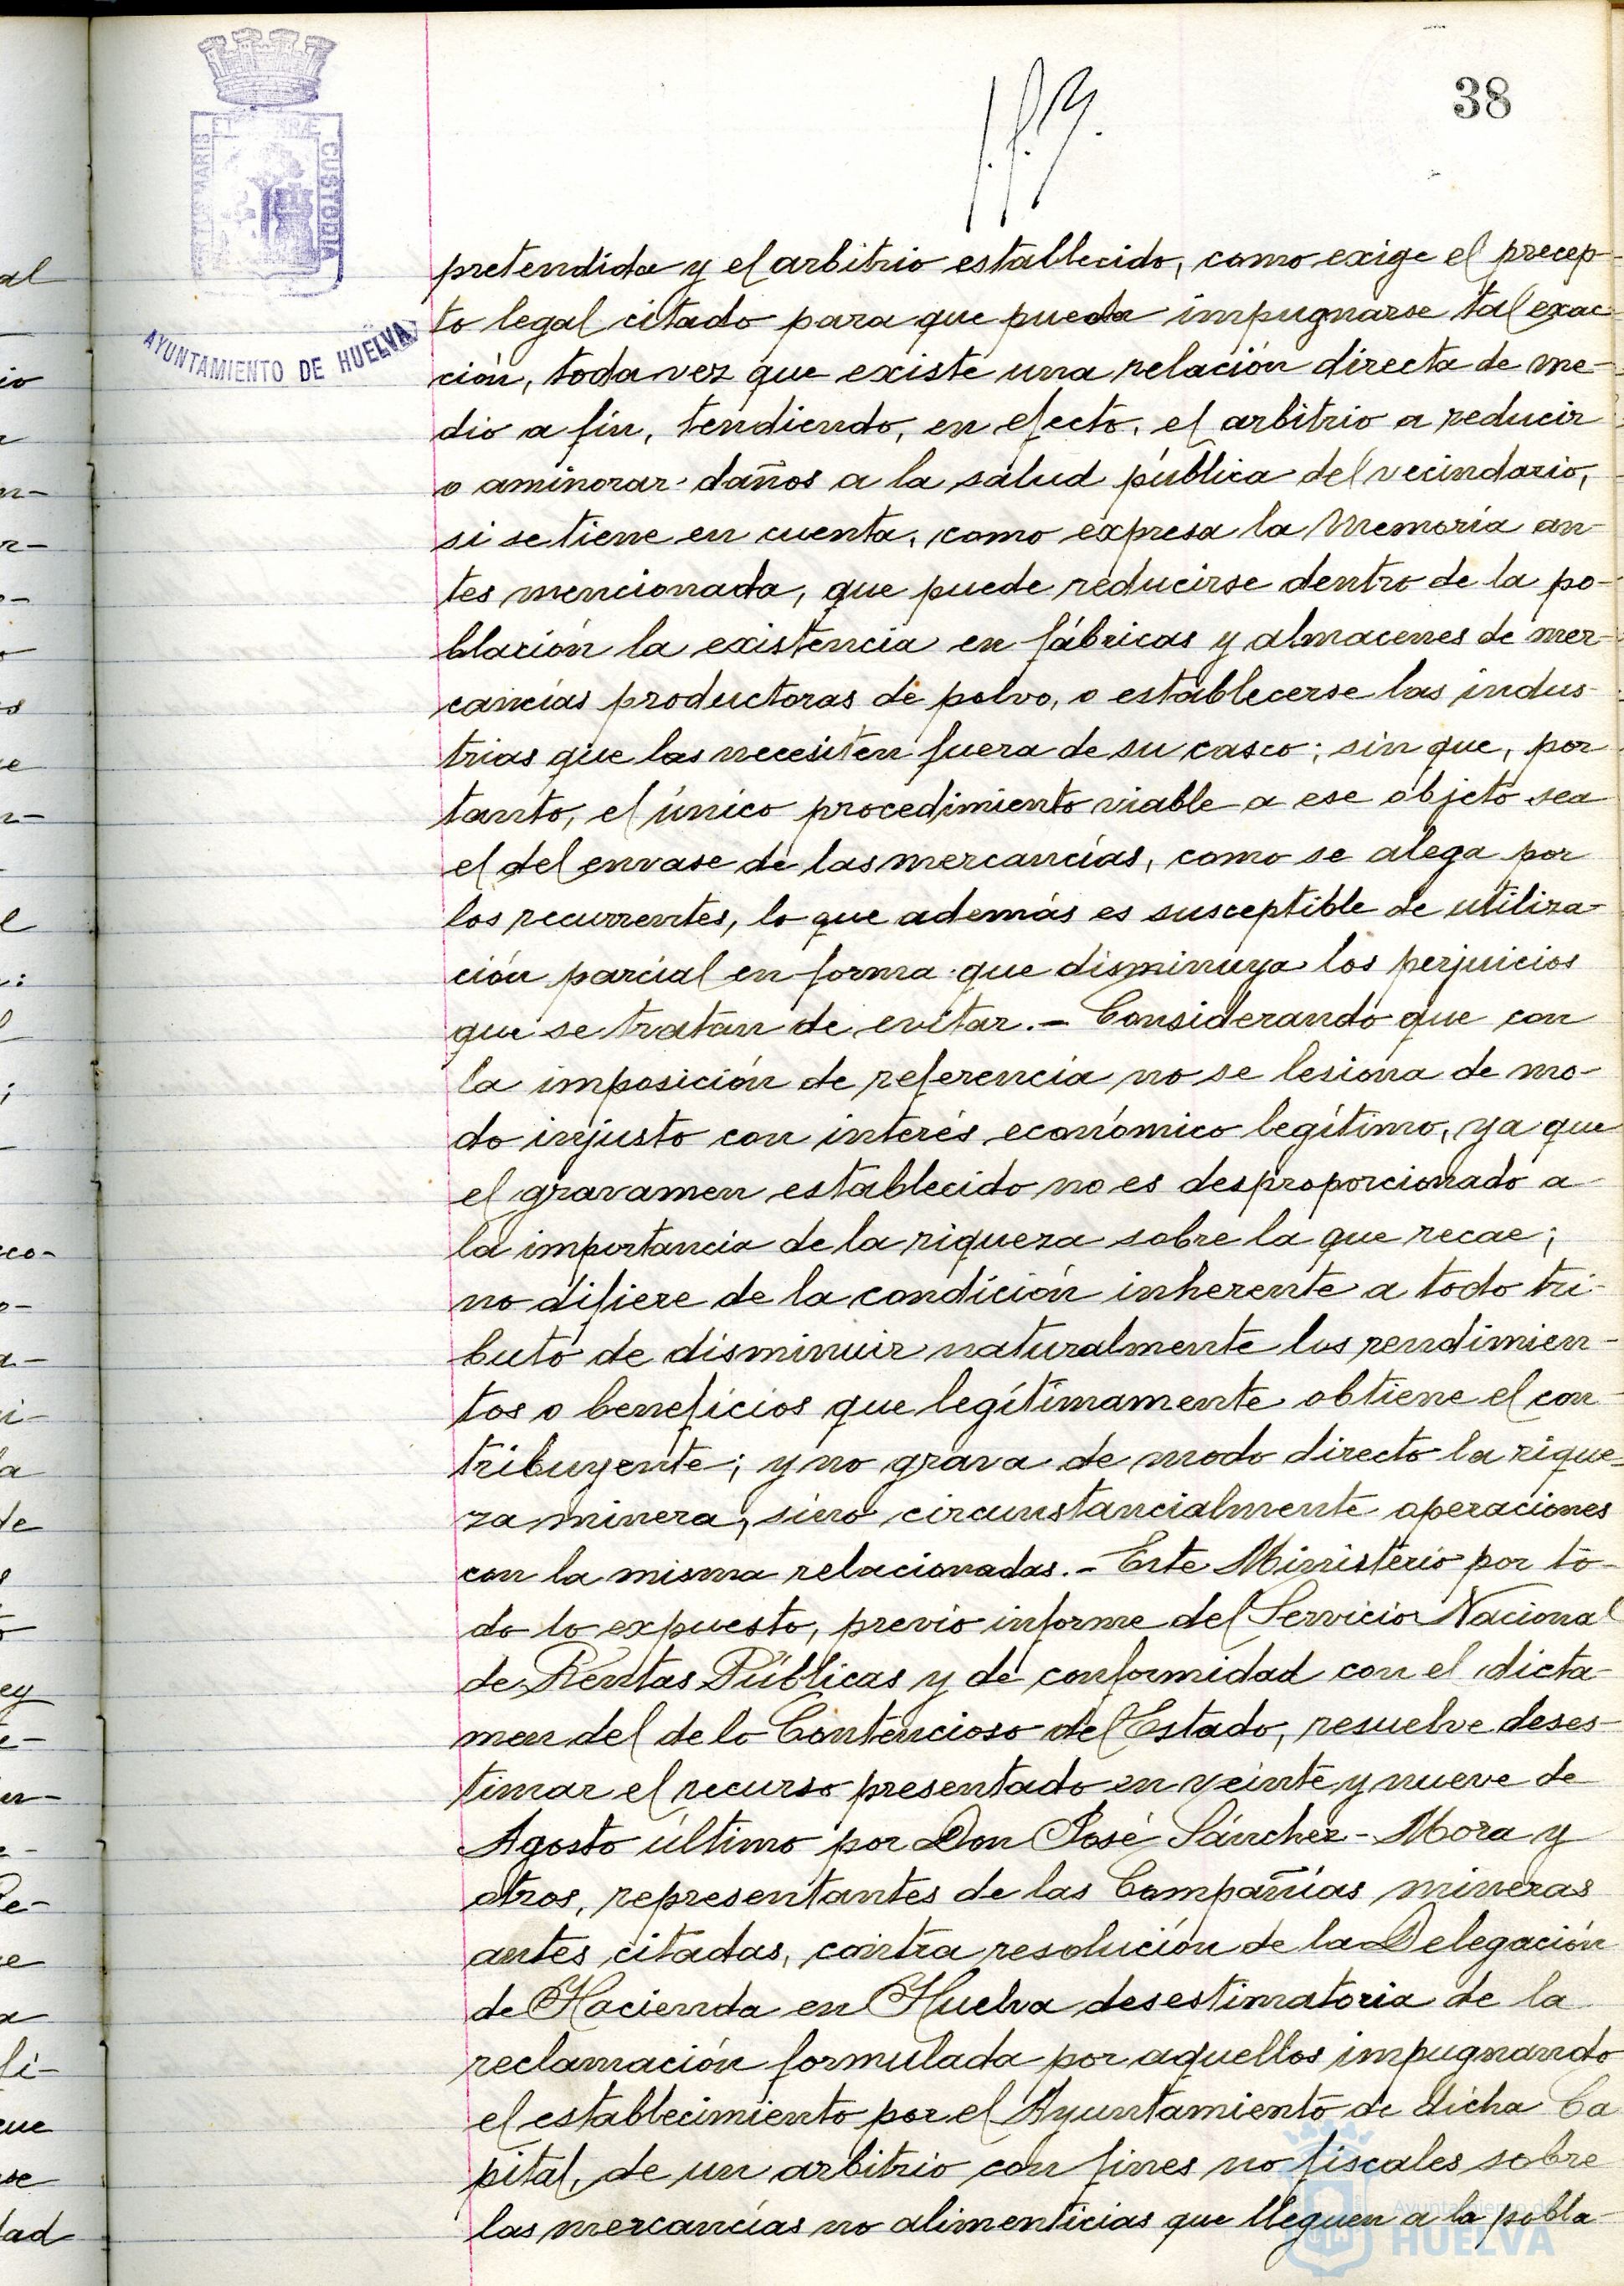 38
PORTUS MARIS ET TERRÆ CUSTODIA
AYUNTAMIENTO DE HUELVA
pretendida y el arbitrio establecido, como exige el precep-
to legal citado para que pueda impugnarse tal exac-
ción, toda vez que existe una relación directa de me-
dio a fin, tendiendo, en efecto, el arbitrio a reducir
o aminorar daños a la salud pública del vecindario,
si se tiene en cuenta, como expresa la Memoria an-
tes mencionada, que puede reducirse dentro de la po-
blación la existencia en fábricas y almacenes de mer-
cancías productoras de polvo, o establecerse las indus-
trias que las necesiten fuera de su casco; sin que, por
tanto, el único procedimiento viable a ese objeto sea
el del envase de las mercancías, como se alega por
los recurrentes, lo que además es susceptible de utiliza-
ción parcial en forma que disminuya los perjuicios
que se tratan de evitar.- Considerando que con
la imposición de referencia no se lesiona de mo-
do injusto con interés económico legítimo, ya que
el gravamen establecido no es desproporcionado a
la importancia de la riqueza sobre la que recae;
no difiere de la condición inherente a todo tri-
buto de disminuir naturalmente los rendimien-
tos o beneficios que legítimamente obtiene el con-
tribuyente; y no grava de modo directo la rique-
za minera, sino circunstancialmente operaciones
con la misma relacionadas.- Este Ministerio por to-
do lo expuesto, previo informe del Servicio Nacional
de Rentas Públicas y de conformidad con el dicta-
men del de lo Contencioso del Estado, resuelve deses-
timar el recurso presentado en veinte y nueve de
Agosto último por Don José Sánchez-Mora y
otros, representantes de las Compañías mineras
antes citadas, contra resolución de la Delegación
de Hacienda en Huelva desestimatoria de la
reclamación formulada por aquellos impugnando
el establecimiento por el Ayuntamiento de dicha Ca
pital, de un arbitrio con fines no fiscales sobre
las mercancías no alimenticias que lleguen a la pobla-
Ayuntamiento de
HUELVA